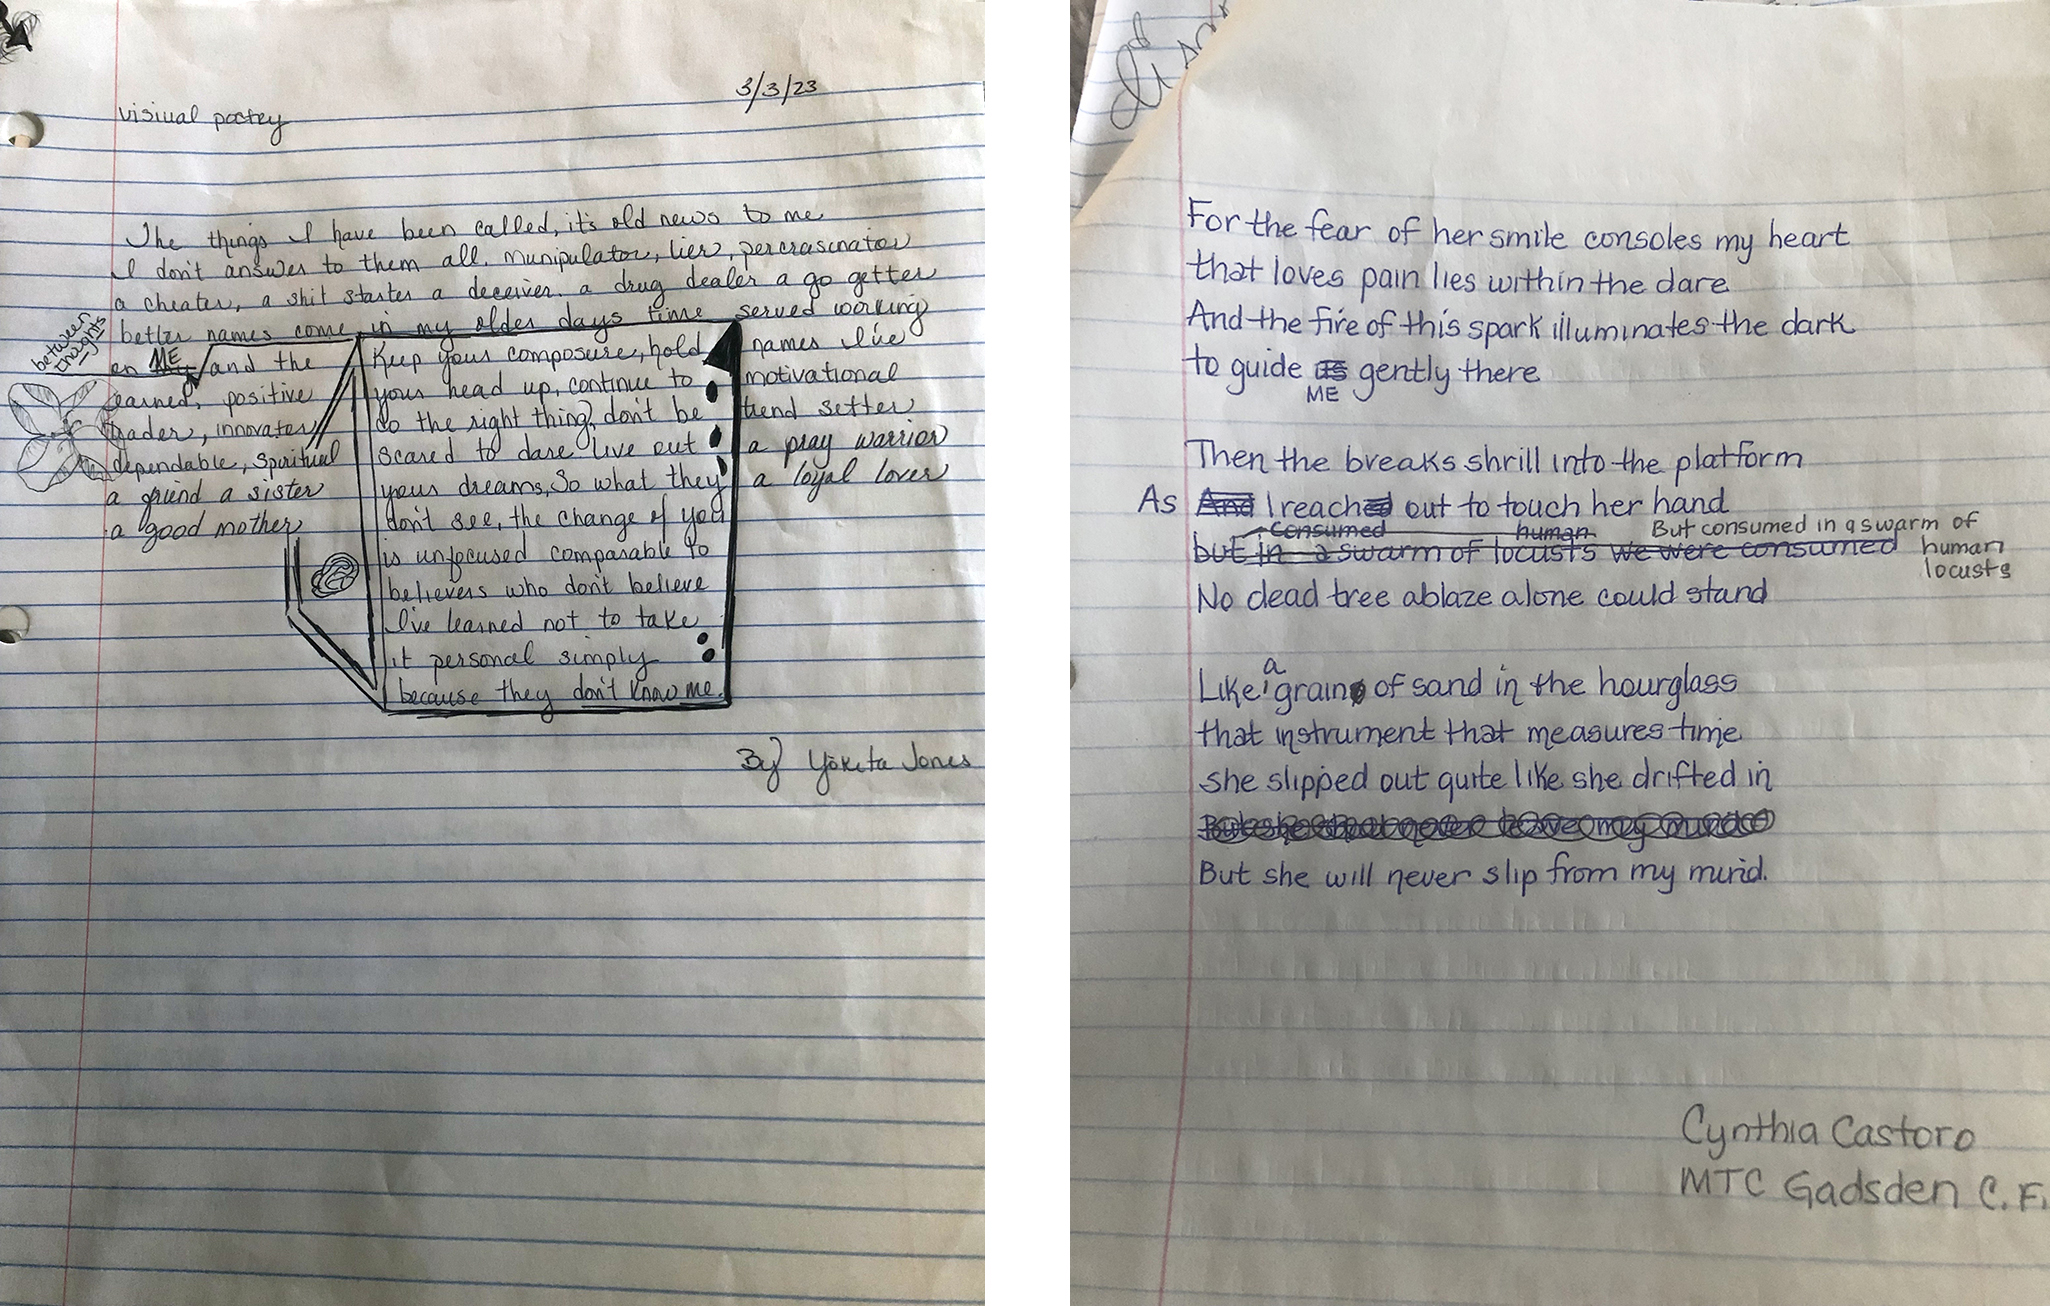 3/3/23
visiual poetey
The things I have been called, it's old news to me
I don't answer to them all. munipulator, lier, percrasinator
a cheater, a shit starter a deceiver. a drug dealer a go getter
better names come in my older days time served working
between
thoughts
on ME and the
earned, positive
leader, innovater
dependable, spiritual
a friend a sister
a good mother
Keep your composure, hold
your head up, continue to
do the right thing, don't be
scared to dare live out
your dreams, So what they
don't see, the change of you
is unfocused comparable to
believers who don't believe
I've learned not to take
it personal simply
because they don't know me.
names I've
motivational
trend setter
a pray warrior
a loyal lover
By Yokita Jones
For the fear of her smile consoles my heart
that loves pain lies within the dare
And the fire of this spark illuminates the dark
to guide us gently there
ME
Then the breaks shrill into the platform
As And I reached out to touch her hand
Consumed human But consumed in a swarm of
but in a swarm of locusts we were consumed human
locusts
No dead tree ablaze alone could stand
a
Like grain of sand in the hourglass
that instrument that measures time
she slipped out quite like she drifted in
But she will never slip from my mind.
Cynthia Castoro
MTC Gadsden C.F.